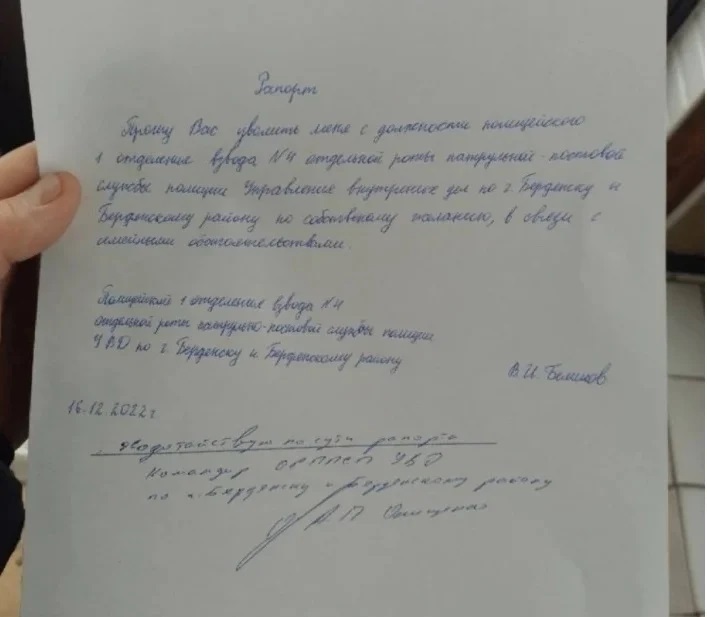 Рапорт
Прошу Вас уволить меня с должности полицейского
1 отделения взвода №4 отдельной роты патрульно-постовой
службы полиции Управления внутренних дел по г. Бердянску и
Бердянскому району по собственному желанию, в связи с
семейными обстоятельствами.
Полицейский 1 отделения взвода №4
отдельной роты патрульно-постовой службы полиции
УВД по г. Бердянску и Бердянскому району
В.И. Беликов
16.12.2022г
Ходатайствую по сути рапорта
Командир ОРППСП УВД
по г. Бердянску и Бердянскому району
А.П.